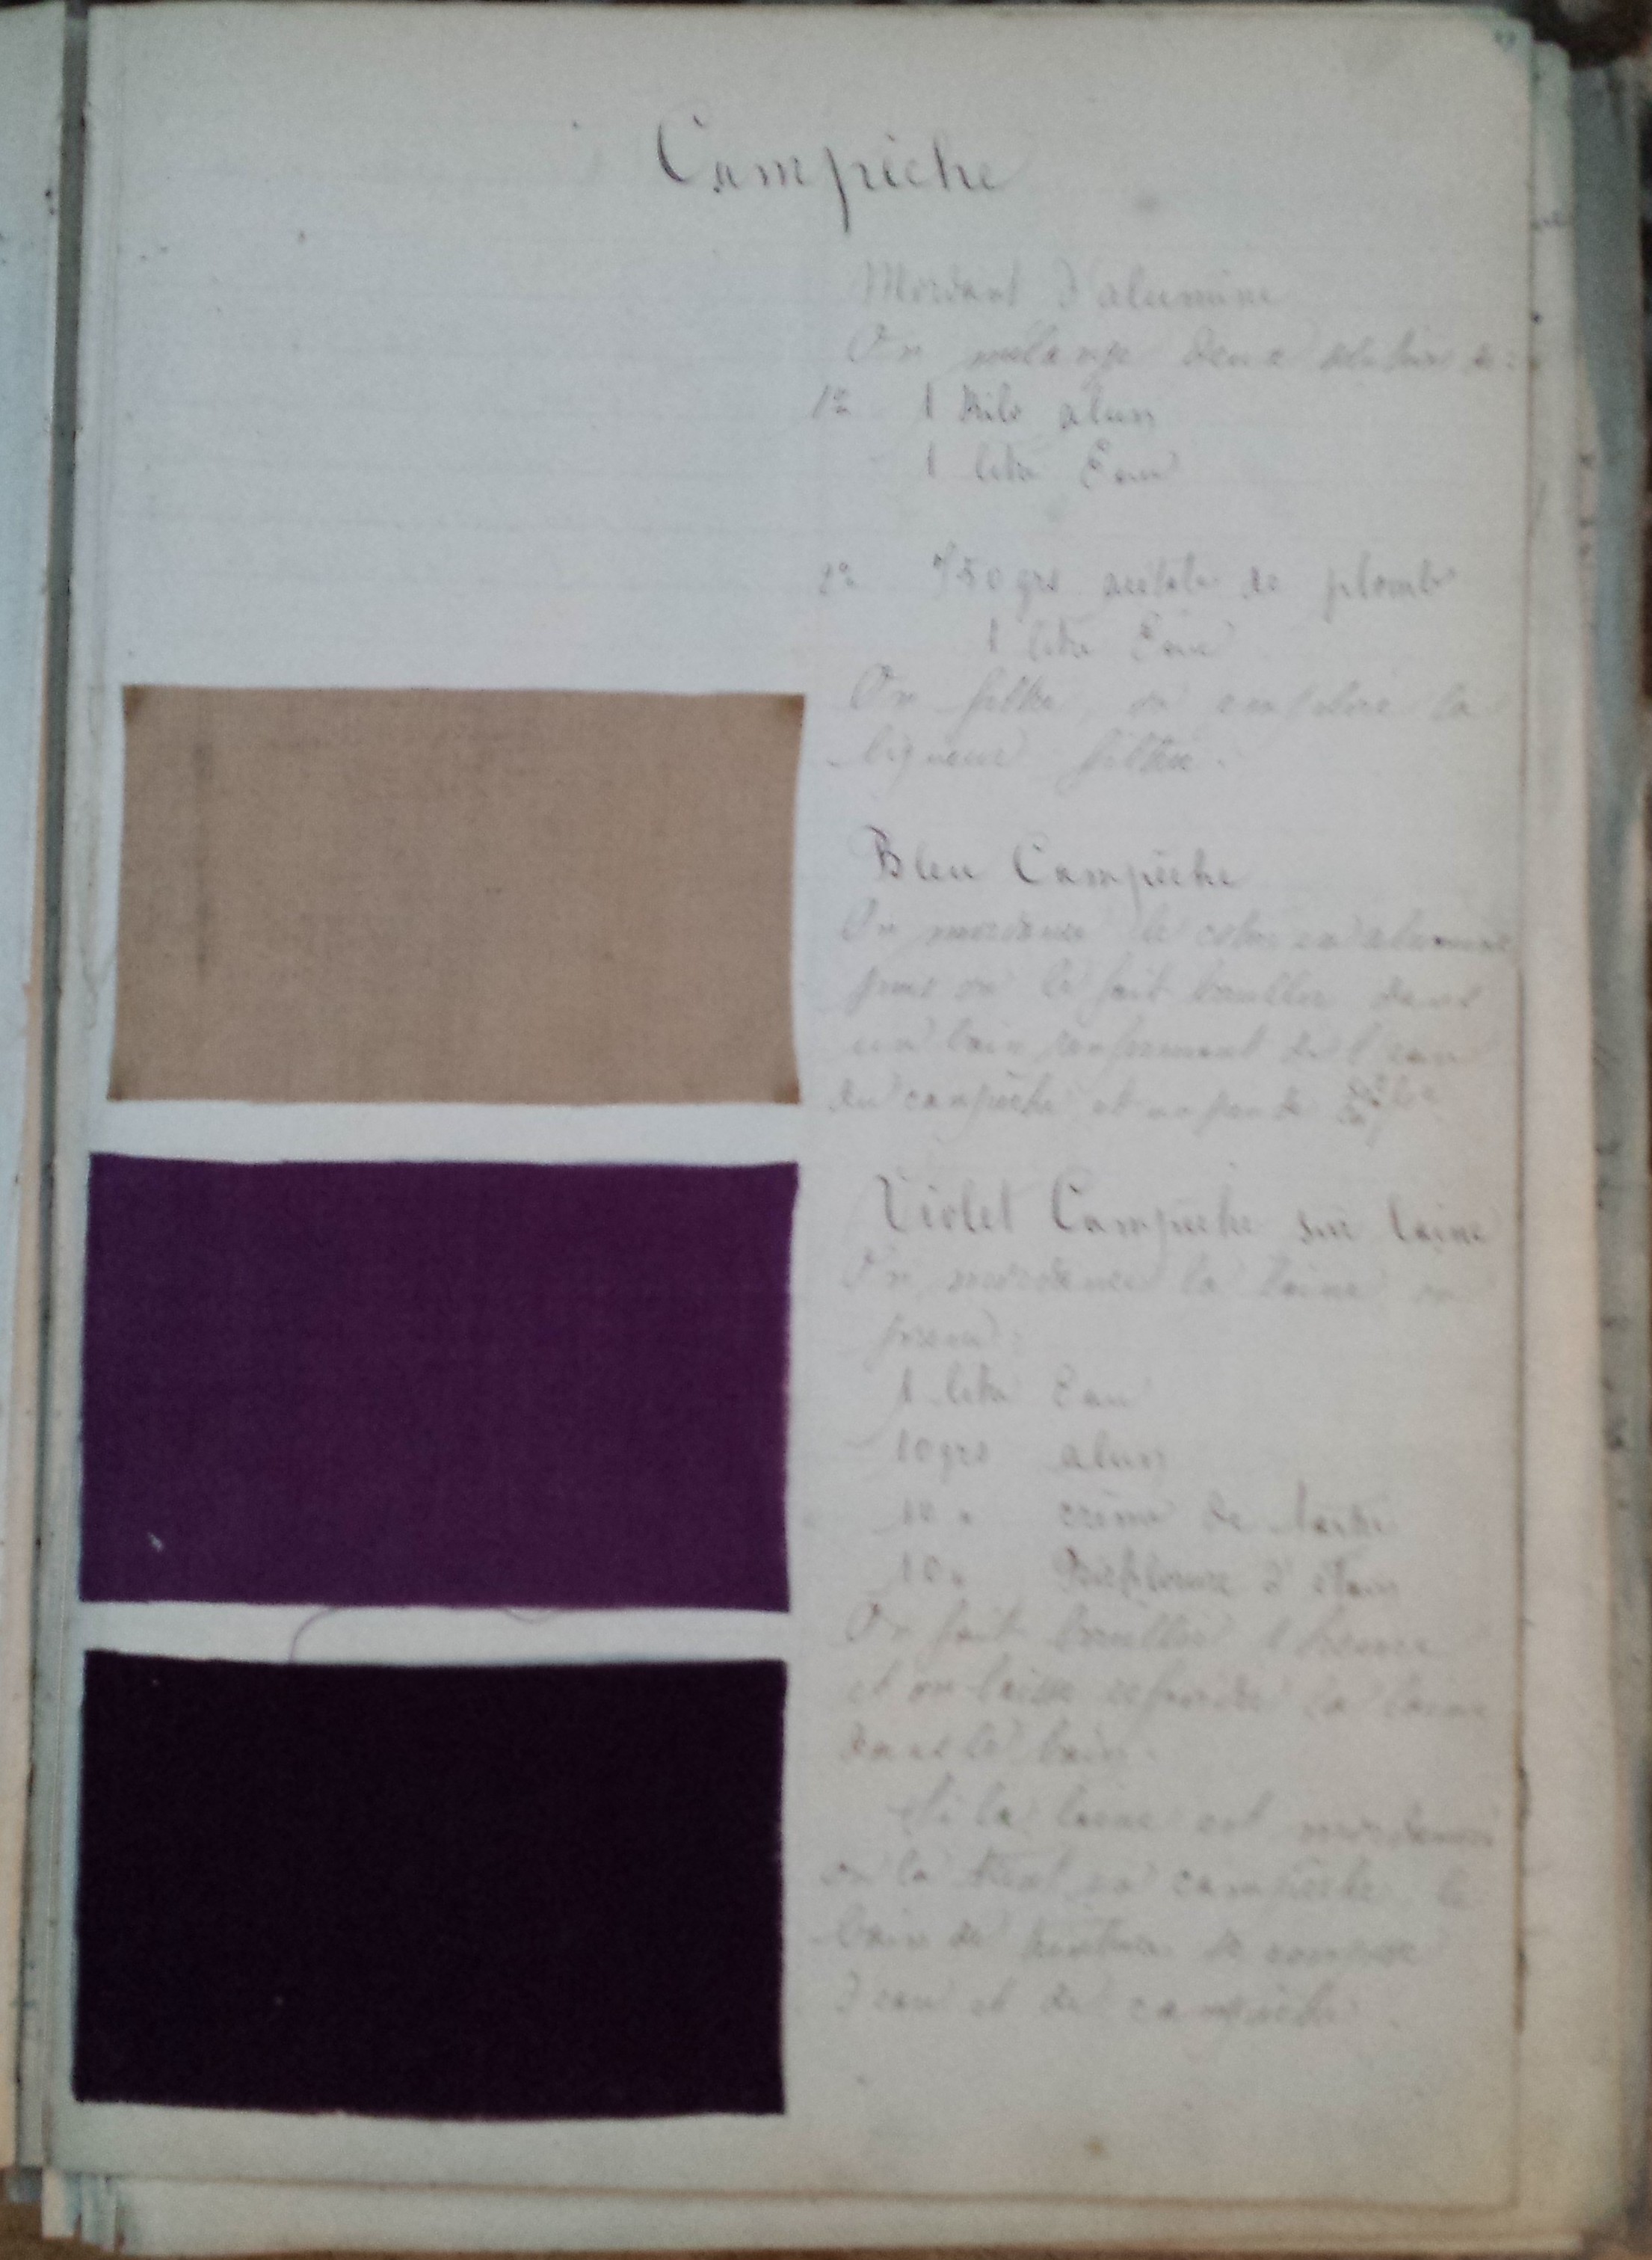 Campêche
Mordant d'alumine
On mélange deux solutions de :
1º 1 Kilo alun
1 litre Eau
2º 750 grs acétate de plomb
1 litre Eau
On filtre, on emploie la
liqueur filtrée.
Bleu Campêche
On mordance le coton en alumine
puis on le fait bouillir dans
un bain renfermant de l'eau
du campêche et un peu de
Violet Campêche sur laine
On mordance la laine on
prend :
1 litre Eau
10 grs alun
10 " crème de tartre
10 " d'étain
On fait bouillir 1 heure
et on laisse refroidir la laine
dans le bain.
Si la laine est mordancée
on la teint en campêche le
bain de teinture se compose
d'eau et de campêche.